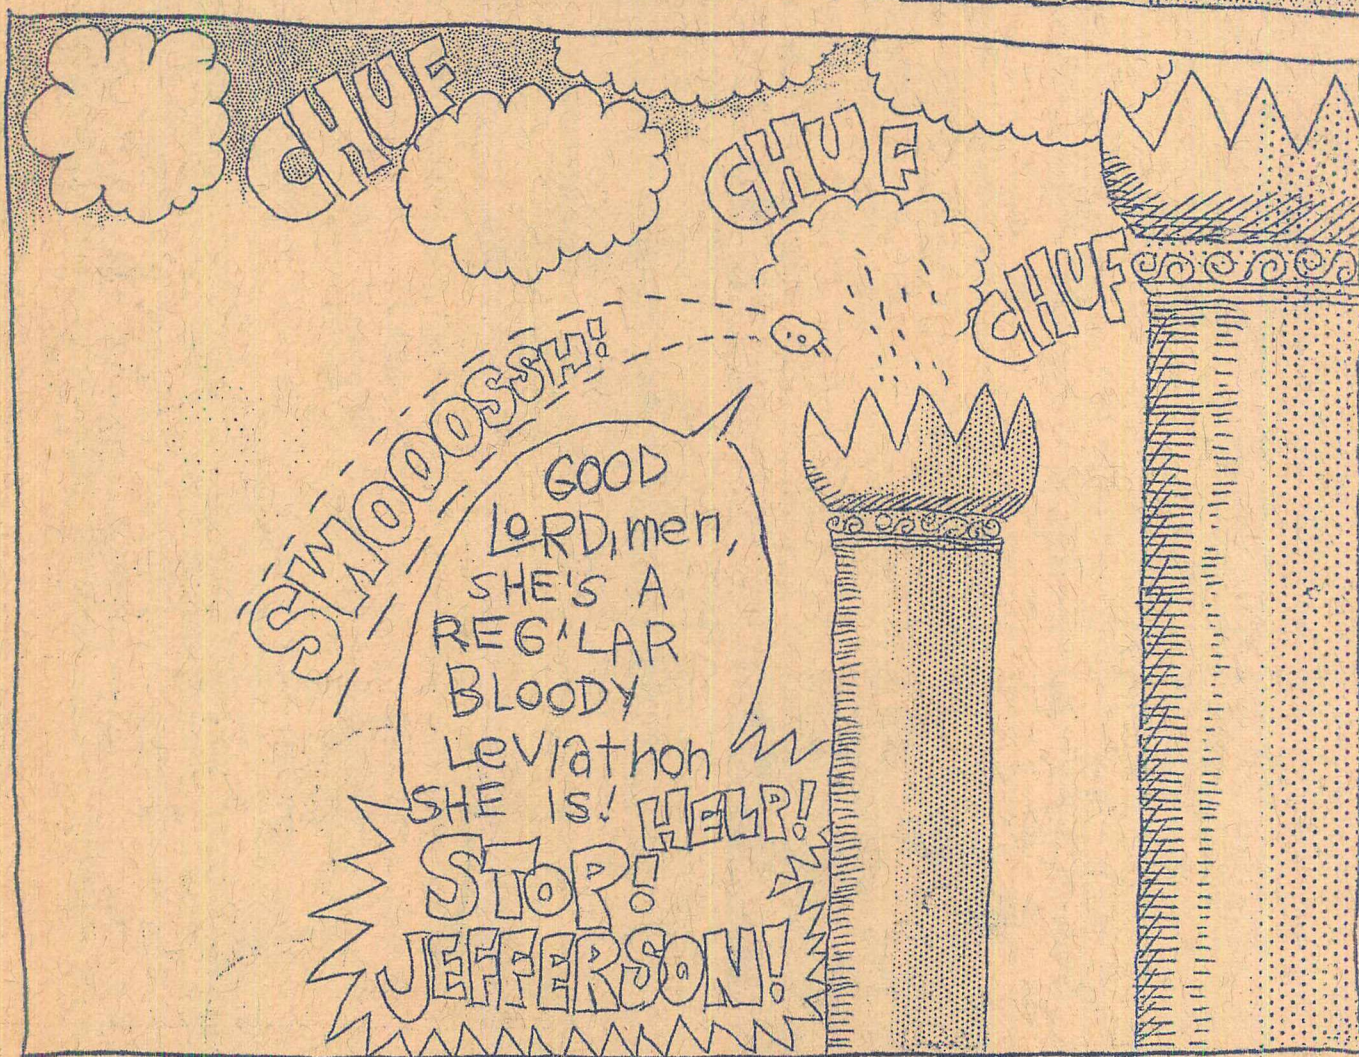 CHUF
CHUF
CHUF
SWOOOOSSSH!
GOOD
LORD, men,
SHE'S A
REG'LAR
BLOODY
Leviathon
SHE IS!
HELP!
STOP!
JEFFERSON!